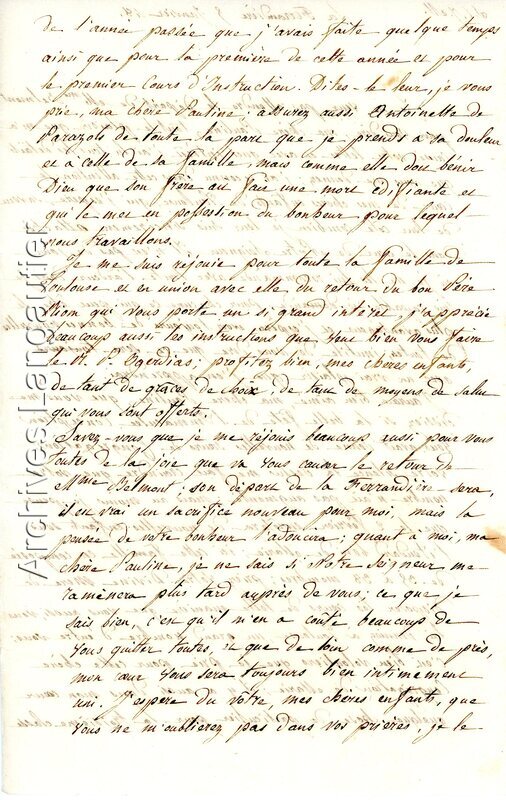 de l'année passée que j'avais faite quelque temps
ainsi que pour la premiere de cette année et pour
le premier Cours d'Instruction. Dites-le leur, je vous
prie, ma chère Pauline ; assurez aussi Antoinette de
Parazols de toute la part que je prends a sa douleur
et a celle de sa famille, mais comme elle doit bénir
Dieu que son frère ait fait une mort édifiante et
qui le met en possession du bonheur pour lequel
nous travaillons.
Je me suis rejouie pour toute la famille de
Toulouse et en union avec elle du retour du bon Père
qui vous porte un si grand intérêt, j'apprécie
beaucoup aussi les instructions que veut bien vous faire
le R. P. Ogerdias ; profitez bien, mes chères enfants,
de tant de grâces de choix, de tant de moyens de salut
qui vous sont offerts.
Savez-vous que je me rejouis beaucoup aussi pour vous
toutes de la joie que va vous causer le retour de
Mme Belmont ; son départ de la Ferrandière sera,
il est vrai un sacrifice nouveau pour moi, mais la
pensée de votre bonheur l'adoucira ; quant à moi, ma
chère Pauline, je ne sais si Notre Seigneur me
ramènera plus tard auprès de vous ; ce que je
sais bien, c'est qu'il m'en a couté beaucoup de
vous quitter toutes, et que de loin comme de près,
mon cœur vous sera toujours bien intimement
uni. J'espère du vôtre, mes chères enfants, que
vous ne m'oublierez pas dans vos prières, je le
Archives Langautier